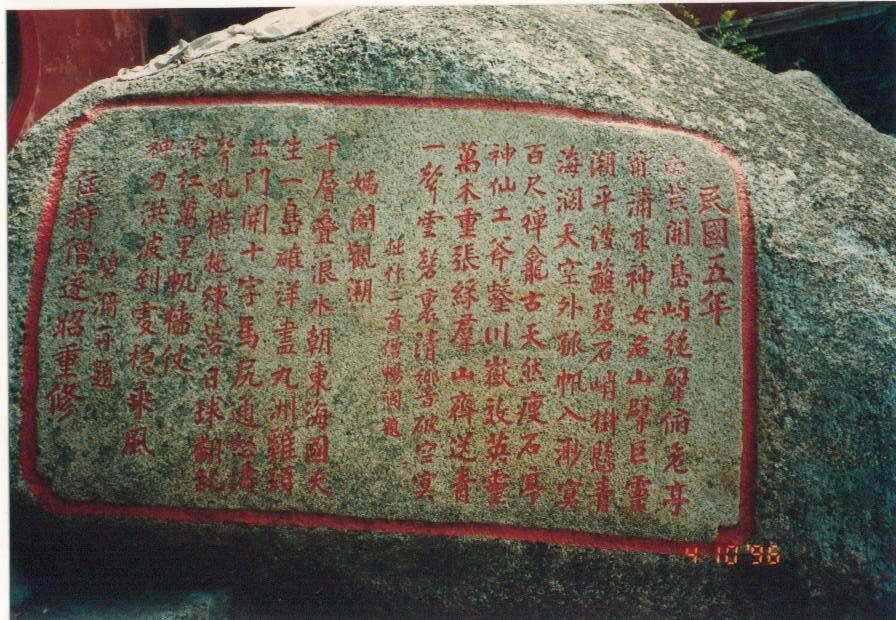 民國五年
南荒開島嶼絶壁俯危亭
浦來神女名山擘巨靈
潮平波蘸碧石峭樹懸青
海濶天空外孤帆入渺冥
百尺禪龕古天然瘦石亭
神仙工斧鑿川嶽效英靈
萬木重張綵羣山齊送青
一聲雲磬裏清響破空冥
拙作二首僧暢瀾題
媽閣觀潮
千層叠浪水朝東海國天
生一島雄洋盡九洲雞頸
出門開十字馬尻通怒濤
聲吼橫拖練落日球翻
滚紅萬里帆檣仗
神力洪波到處穏乘風
碧濔再題
住持僧遂昭重修
4 10 '96